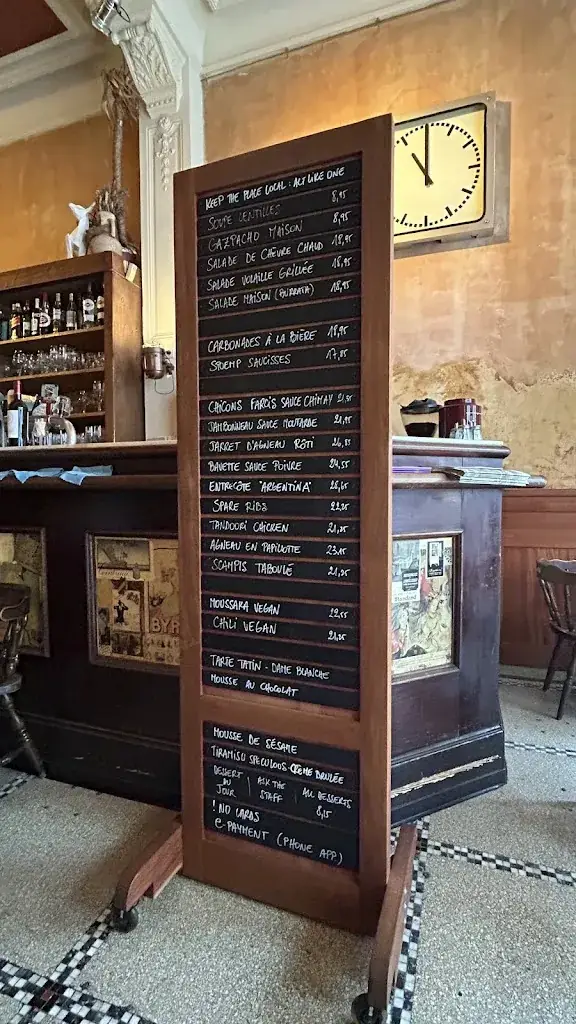 KEEP THE PLACE LOCAL : ACT LIKE ONE
SOUPE LENTILLES 8,95
GAZPACHO MAISON 8,95
SALADE DE CHÈVRE CHAUD 18,95
SALADE VOLAILLE GRILLÉE 18,95
SALADE MAISON (BURRATA) 18,95
CARBONADES À LA BIÈRE 18,95
STOEMP SAUCISSES 17,85
CHICONS FARCIS SAUCE CHIMAY 21,55
JAMBONNEAU SAUCE MOUTARDE
JARRET D'AGNEAU RÔTI
BAVETTE SAUCE POIVRE 24,55
ENTRECÔTE "ARGENTINA"
SPARE RIBS
TANDOORI CHICKEN
AGNEAU EN PAPILLOTE
SCAMPIS TABOULÉ
MOUSSAKA VEGAN
CHILI VEGAN
TARTE TATIN - DAME BLANCHE
MOUSSE AU CHOCOLAT
MOUSSE DE SÉSAME
TIRAMISU SPECULOOS - CRÈME BRULÉE
DESSERT DU JOUR | ASK THE STAFF | ALL DESSERTS 8,15
! NO CARDS
e-PAYMENT (PHONE APP)